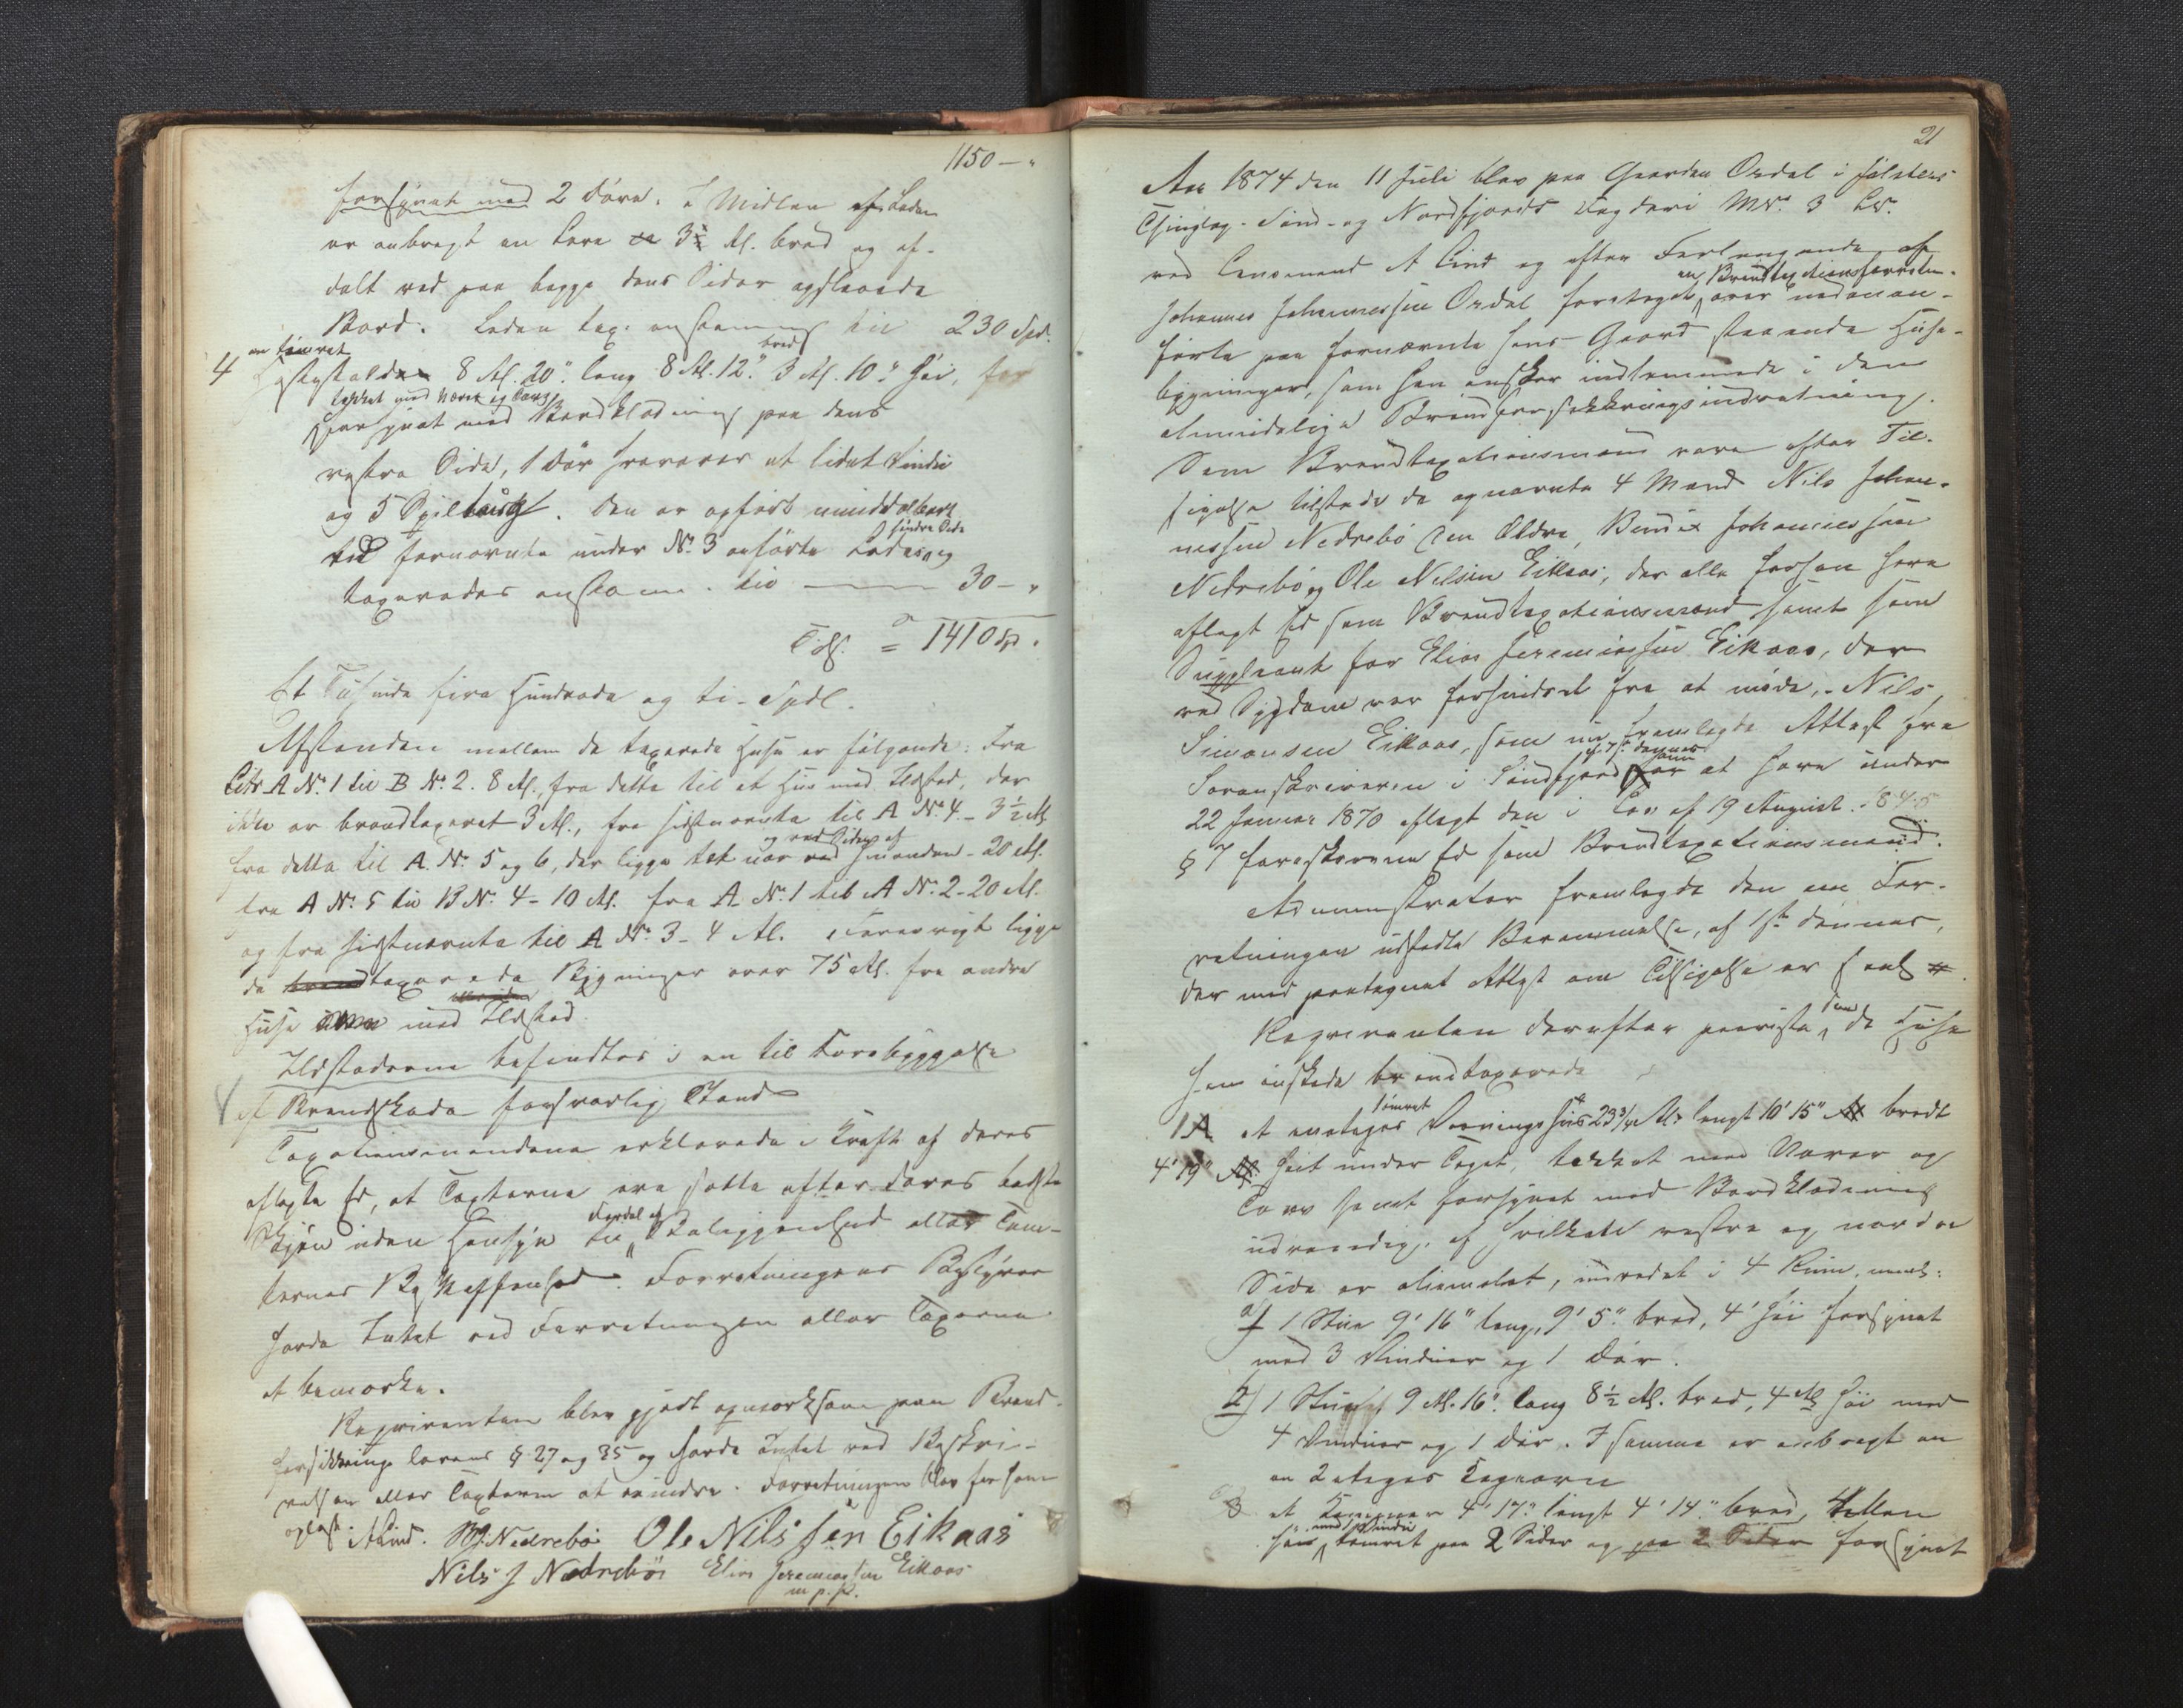 1150 — "
forsynet med 2 Døre. I Midten af Laden
er anbragt en Lave 3½ Al. bred og af-
delt ved paa begge dens Sider opslaaede
Bord. Laden tax. enstemmig til 230 Spd.
en tømret
4 Hestestald 8 Al. 20" lang 8 Al. 12" bred 3 Al. 10" høi, for
tekket med Næver og Torv
forsynet med Bordklædning paa dens
vestre Side, 1 Dør et lidet Vindu
og 5 Spiltoug. Den er opført umiddelbart
ved fornævnte under No. 3 anførte Lades søndre Side og
taxeredes enstemm. til — 30 — "
Tils. = 1410 Sp.
Et Tusinde fire Hundrede og ti Spdl.
Afstanden mellem de taxerede Huse er følgende: Fra
Litr A No. 1 til B No. 2. 8 Al., fra dette til et Hus med Ildsted, der
ikke er brandtaxeret 3 Al., fra sidstnævnte til A No. 4 - 3½ Al.
fra dette til A. No. 5 og 6, der ligge tæt ved Siden af hinanden - 20 Al.
fra A No. 5 til B No. 4 - 10 Al. fra A. No. 1 til A No. 2 - 20 Al.
og fra sidstnævnte til A No. 3 - 4 Al. Forøvrigt ligge
de taxerede Bygninger over 75 Al. fra andre
Huse med Ildsted.
Ildstederne befindtes i en til Forebyggelse
af Brandskade forsvarlig Stand
Taxationsmændene erklærede i Kraft af deres
aflagte Ed, at Taxterne ere satte efter deres bedste
Skjøn uden Hensyn til Fordel af Beliggenhed eller Tom-
ternes Beskaffenhed. Forretningens Bestyrer
havde Intet ved Forretningen eller Taxterne
at bemærke.
Rekvirenten blev gjort opmærksom paa Brand-
forsikringslovens § 27 og 35 og havde Intet ved Beskri-
velsen eller Taxterne at erindre. Forretningen blev for ham
oplæst. A Lind. B J. Nedrebø Ole Nilssen Eikaas
Nils J Nedrebø Elias Jeremiassen Eikaas
m. p. P.
21
Aar 1874 den 11 Juli blev paa Gaarden Ordal i Jølsters
Thinglag - Sønd- og Nordfjords Fogderi MNo. 3 LNo.
ved Lensmand A Lind og efter Forlangende af
Johannes Johannessen Ordal foretaget en Brandtaxtionsforretn. over nedenan-
førte paa fornævnte hans Gaard staaende Huse-
bygninger, som han ønsker indlemmede i den
almindelige Brandforsikkringsindretning.
Som Brandtaxationsmænd vare efter Til-
sigelse tilstede de opnævnte 4 Mænd Nils Johan-
nessen Nedrebø den Ældre, Bendix Johannessen
Nedrebø og Ole Nilssen Eikaas, der alle forhen have
aflagt Ed som Brandtaxationsmænd samt som
Suppleant for Elias Jeremiassen Eikaas, der
ved Sygdom var forhindret fra at møde, - Nils
Simonsen Eikaas, som nu fremlagde Attest fra
Sorenskriveren i Søndfjord af 7de dennes for at have under
22 Januar 1870 aflagt den i Lov af 19 August 1845
§ 7 foreskrevne Ed som Brandtaxationsmand.
Administrator fremlagde den om For-
retningen udstedte Berammelse, af 1ste dennes,
der med paategnet Attest om Tilsigelse
Rekvirenten derefter paaviste dem de Huse
han ønskede brandtaxerede
1 A et enetages tømret Vaaningshus 23¾ Al. langt 10' 15" bredt
4' 19" høit under Taget, tekket med Næver og
Torv samt forsynet med Bordklædning
udvendig, af hvilket vestre og nordre
Side er oliemalet, indredet i 4 Rum, nemlig:
a) 1 Stue 9' 16" lang, 9' 5" bred, 4' høi forsynet
med 3 Vinduer og 1 Dør.
2) 1 Stue 9 Al. 16" lang 8½ Al. bred, 4 Al. høi med
4 Vinduer og 1 Dør. I samme er anbragt en
en 2 etages Kogeovn
3 et Kammer 4' 17" langt 4' 14" bred,
høi med Vindu tømret paa 2 Sider og paa 2 Sider forsynet